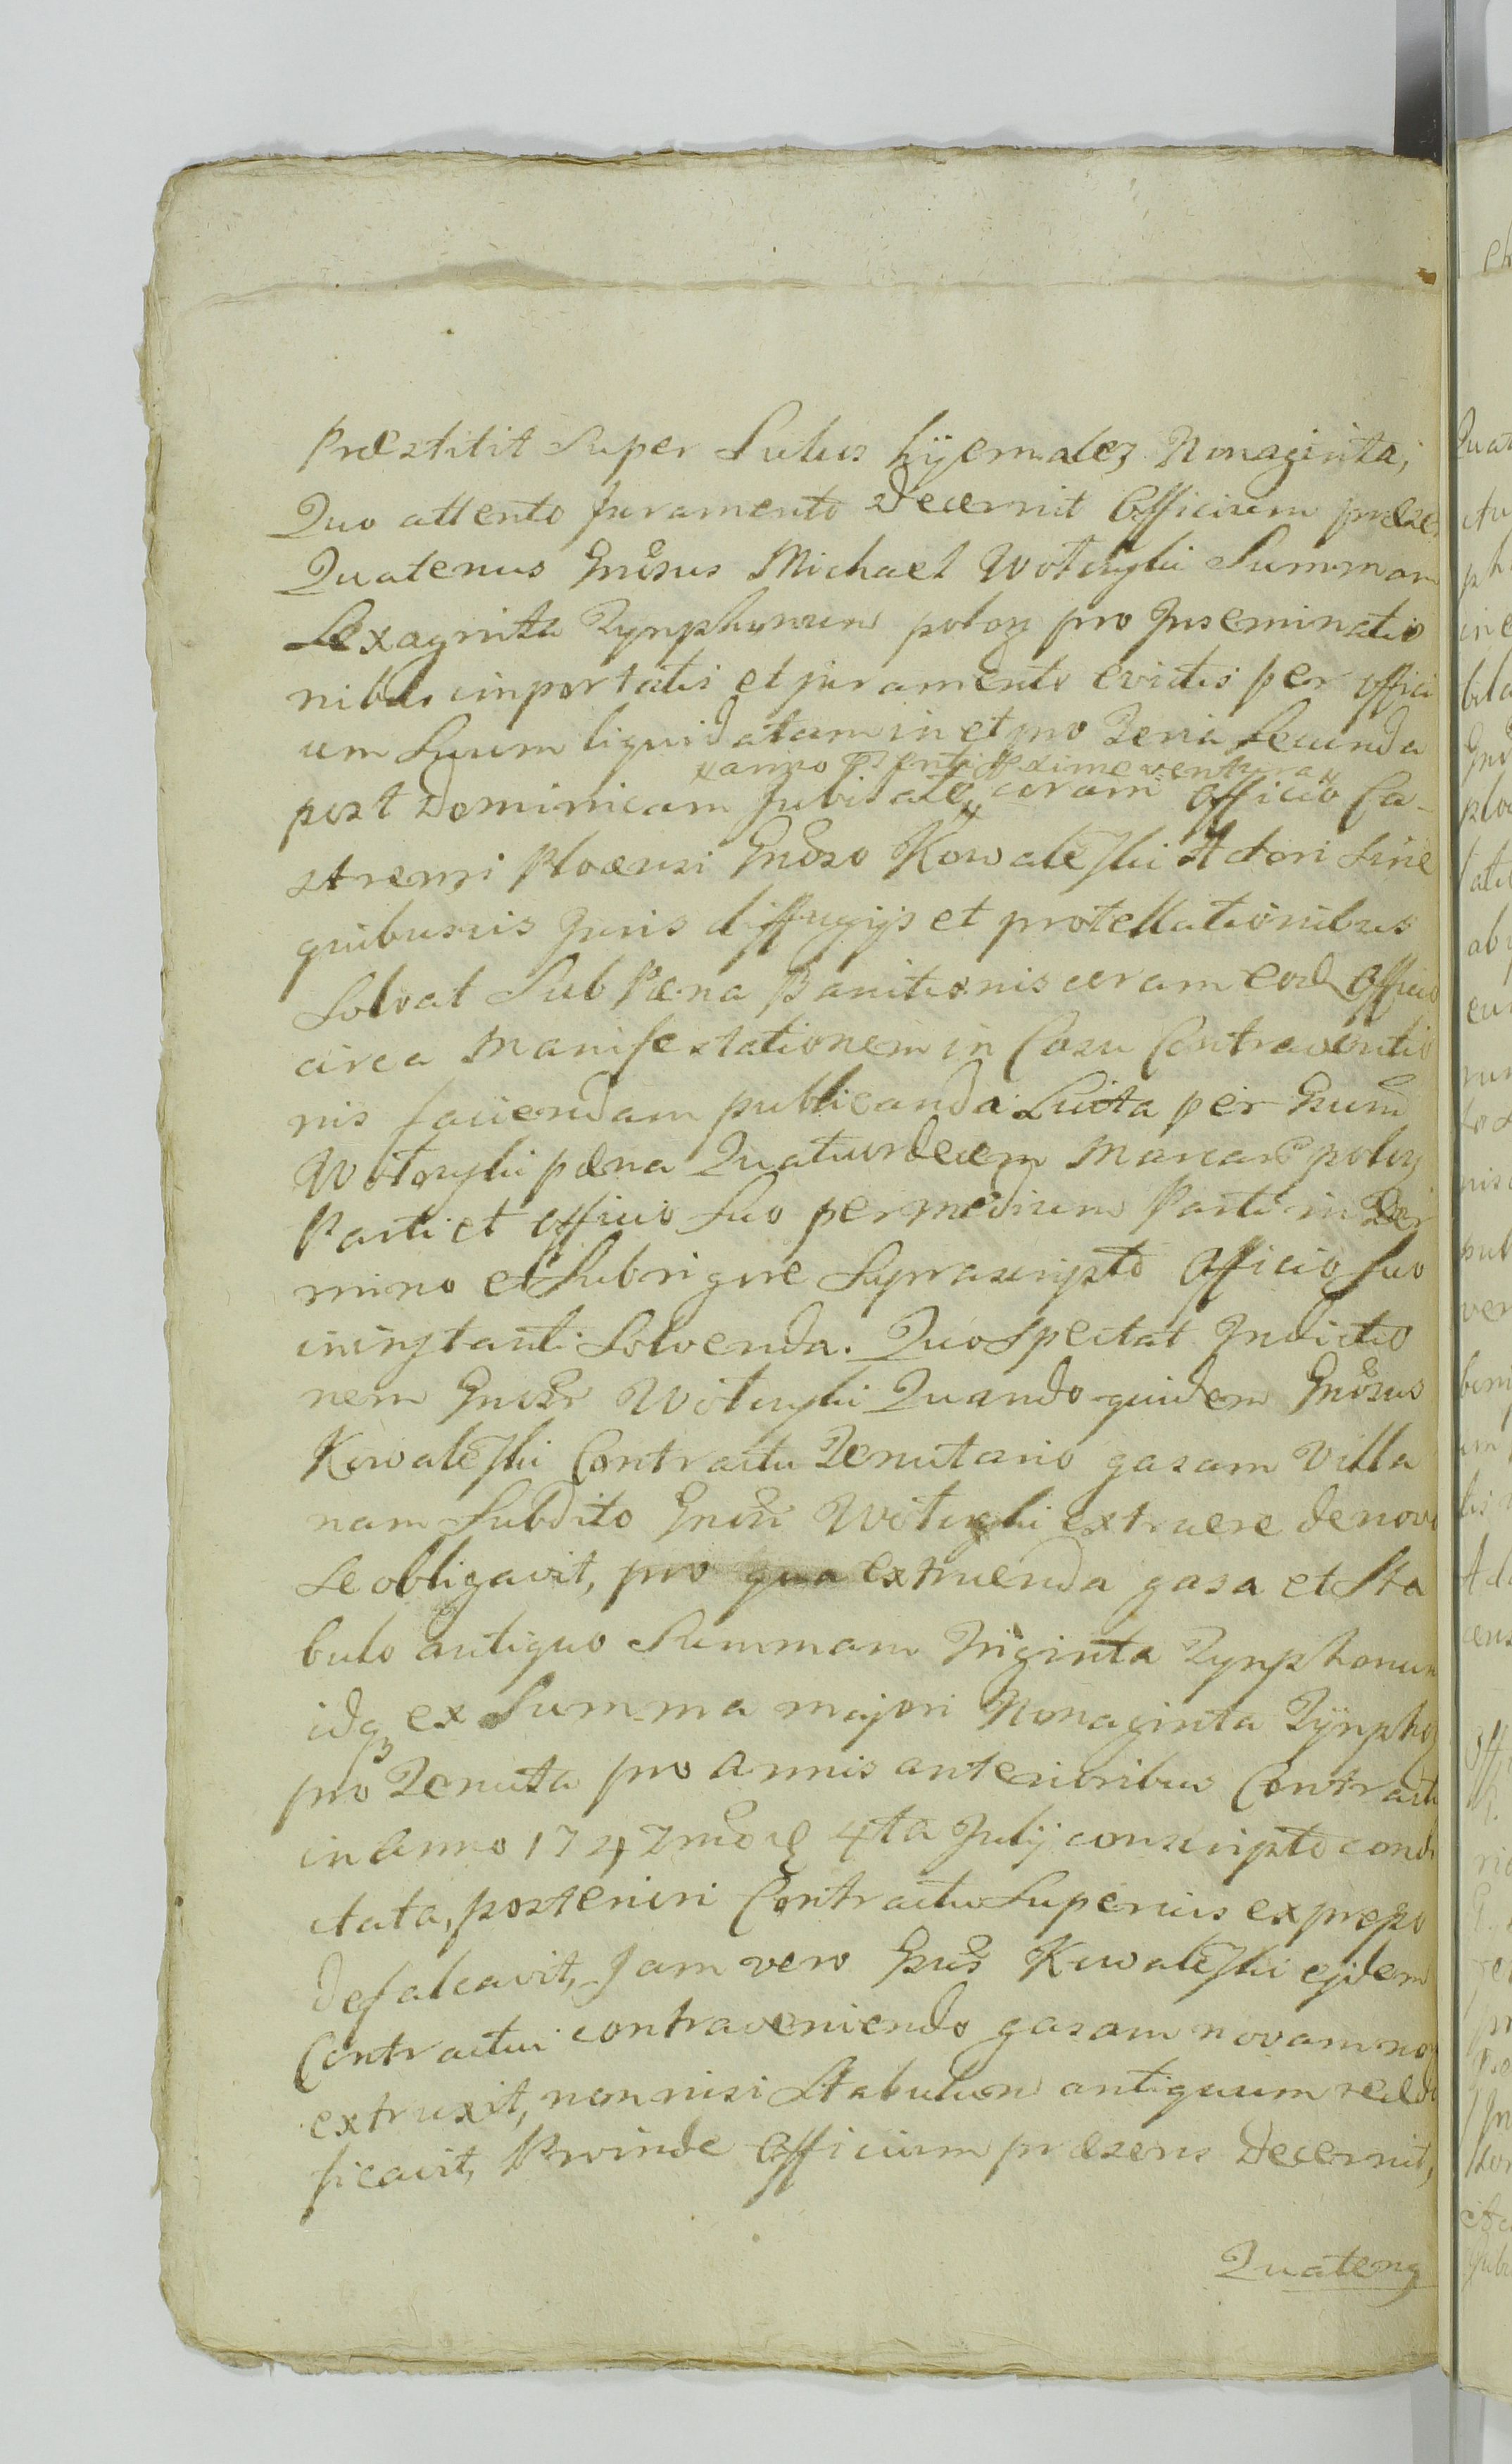 Præstitit Super Sulcos hÿemales Nonaginta,
Quo attento Juramento decernit Officium præse,
Quatenus Gnosus Michael Wotuyski Summam
Sexaginta Tynphonum polon pro Inseminatio
nibus importatis et juramento evictis per offici
um Suum liquidatam in et pro Feria Secunda
x anno præsenti proxime ventura x
post Dominicam Jubilate x coram Officio Ca-
strensi Plocensi Gnoso Kowalewski Actori Sine
quibusvis Juris diffugijs et protellationibus
Solvat Sub Pæna Banitionis coram eod Officio
circa Manifestationem in Casu Contraventio
nis faciendam publicanda Luita per Gsum
Wotuyski pæna Quatuordecem Marcar polon
Parti et officio Suo per medium Parti in Ter
mino et Sub rigore Supra scripto Officio Suo
in instanti Solvenda. Quo Spectat Indictio
nem Gnosi Wotuyski Quando quidem Gnosus
Kowalewski Contractu Tenutario gazam Villa
nam Subdito Gnosi Wotuyski extruere de novo
Se obligavit, pro qua extruenda gasa et Sta
bulo antiquo Summam Triginta Tynphonum
idq ex Summa majori Nonaginta Tÿnpho
pro Tenuta pro annis anterioribus Contractu
in Anno 1742 4ta Julij conscripto condi
ctata, posteriori Contractu Superius expresso
defalcavit, Jam vero Gsus Kowalewski ejdem
Contractui contraveniendo gasam novam non
extruxit, non nisi Stabulum antiquum reædi
ficavit, Proinde Officium præsens decernit,
Quatenq